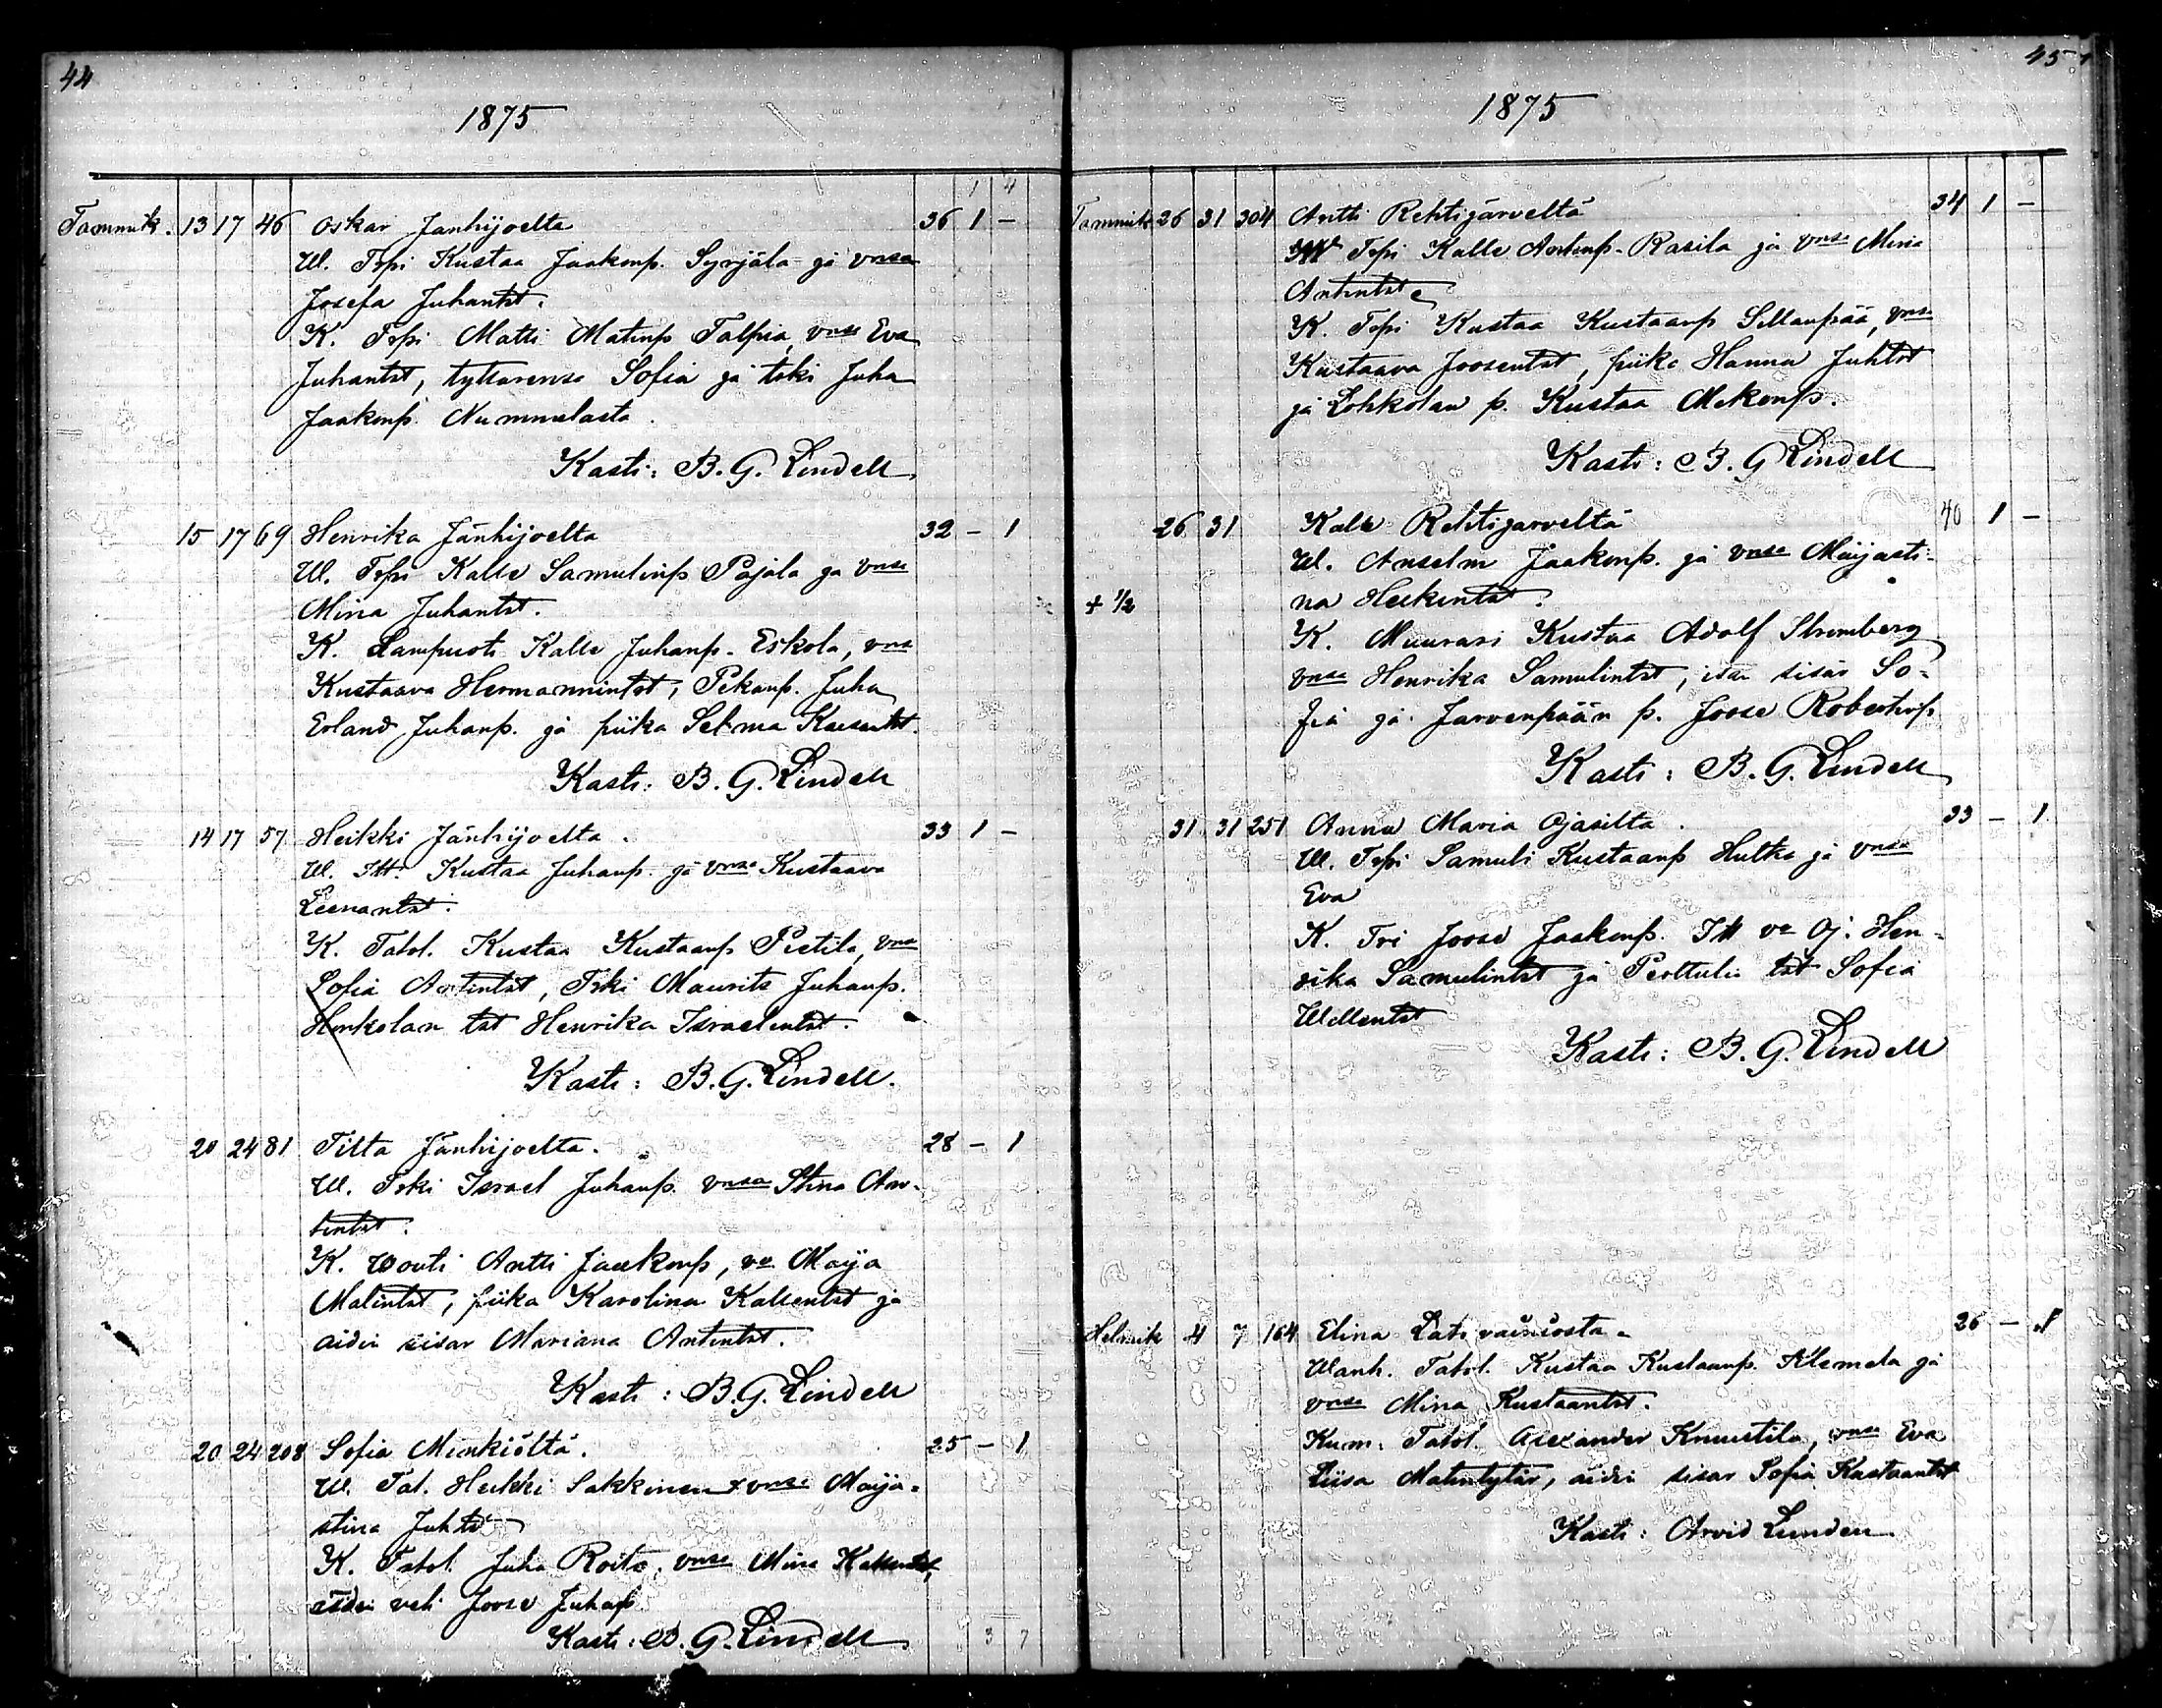 44
1875
1 4
Tammik. 13 17 46 Oskar Jänhijoelta 36 1 -
W. Trpi Kustaa Jaakonp. Syrjälä ja vmsa
Josefa Juhantst.
K. Trpi Matti Matinp Talpia, vmsa Eva
Juhantst, tyttärensä Sofia ja toki Juha
Jaakonp. Nummelasta.
Kasti: B. G. Lindell
15 17 69 Henrika Jänhijoelta 32 - 1
W. Trpi Kalle Samulinp Pajala ja vmsa
Mina Juhantst.
K. Lampuoti Kalle Juhanp. Eskola, vmsa
Kustaava Hermannintst, Pekanp. Juha
Erland Juhanp. ja piika Selma
Kasti: B. G. Lindell
14 17 57 Heikki Jänhijoelta. 33 1 -
W. Itt. Kustaa Juhanp. ja vmsa Kustaava
Leenantst.
K. Tatol. Kustaa Kustaanp Pietila, vmsa
Sofia Antintst, Trki Maurits Juhanp.
Honkolan tst Henrika Israelintst.
Kasti: B. G. Lindell.
20 24 81 Tilta Jänhijoelta. 28 - 1
W. Trki Israel Juhanp. vmsa Stina An-
tintst.
K. Wouti Antti Jaakonp, va Maija
Matintst, piika Karolina Kallentst ja
äidin sisar Mariana Antintst.
Kasti: B. G. Lindell
20 24 208 Sofia Minkiöltä. 25 - 1
W. Tal. Heikki Sakkinen + vmsa Maija-
stina Juhtst
K. Tatol. Juha Roito, vmsa Mina Kallentst,
äidin veli Joose Juhanp
Kasti: B. G. Lindell
3 7
45
1875
Tammik 26 31 304 Antti Rehtijärveltä 34 1 -
Trpi Kalle Antinp. Rasila ja vmsa Miina
Antintst
K. Trpi Kustaa Kustaanp Sillanpää, vmsa
Kustaava Joosentst, piika Hanna Juhtst
ja Lohkolan p. Kustaa Mekonp.
Kasti: B. G. Lindell
26 31 Kalle Rehtijärveltä 40 1 -
W. Anselm Jaakonp. ja vmsa Maijasti-
+ 1/2 na Heikintst.
K. Muurari Kustaa Adolf Strömberg
vmsa Henrika Samulintst, isän sisar So-
fia ja Järvenpään p. Joose Robertinp
Kasti: B. G. Lindell
31 31 251 Anna Maria Ojasilta. 33 - 1
W. Trpi Samuli Kustaanp Hulka ja vmsa
Eva
K. Tri Joose Jaakonp. Itt va Oj. Hen-
rika Samulintst ja Perttula tst Sofia
Willentst
Kasti: B. G. Lindell
Helmik 4 7 164 Elina Latovainiosta. 26 - 1
Wanh. Tatol. Kustaa Kustaanp. Alemela ja
vmsa Mina Kustaantst.
Kum. Tatol. Alexander Knuutila, vmsa Eva
Liisa Matintytär, äidin sisar Sofia Kustaantst
Kasti: Arvid Lunden